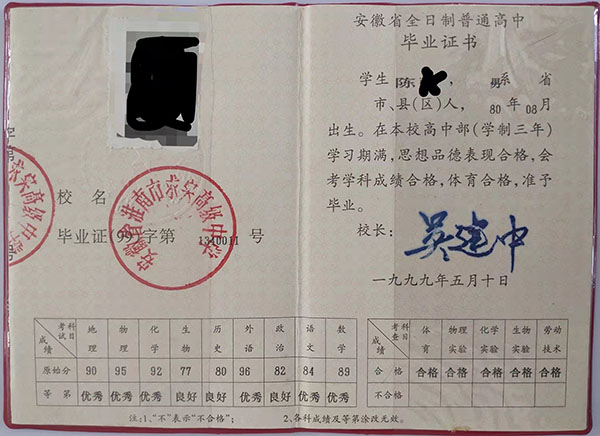 校名
毕业证(99)字第1310011号
考试科目 成绩 地理 物理 化学 生物 历史 外语 政治 语文 数学
原始分 90 95 92 77 80 96 82 84 89
等第 优秀 优秀 优秀 良好 良好 优秀 良好 良好 优秀
注:1、“不”表示“不合格”; 2、各科成绩及等第涂改无效。
安徽省全日制普通高中
毕业证书
学生 陈 , 男 系 省
市、县(区)人, 80年08月
出生。在本校高中部(学制三年)
学习期满,思想品德表现合格,会
考学科成绩合格,体育合格,准予
毕业。
校长: 吴建中
一九九九年五月十日
考查科目 成绩 体育 物理实验 化学实验 生物实验 劳动技术
合格 合格 合格 合格 合格 合格
不合格